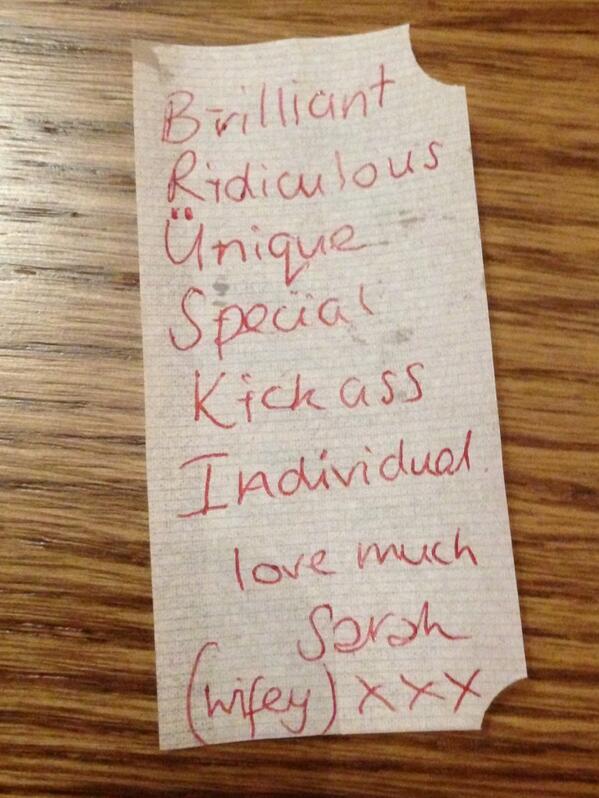 Brilliant
Ridiculous
Ünique
Special
Kick ass
Individual.
love much
Sarah
(wifey) xxx